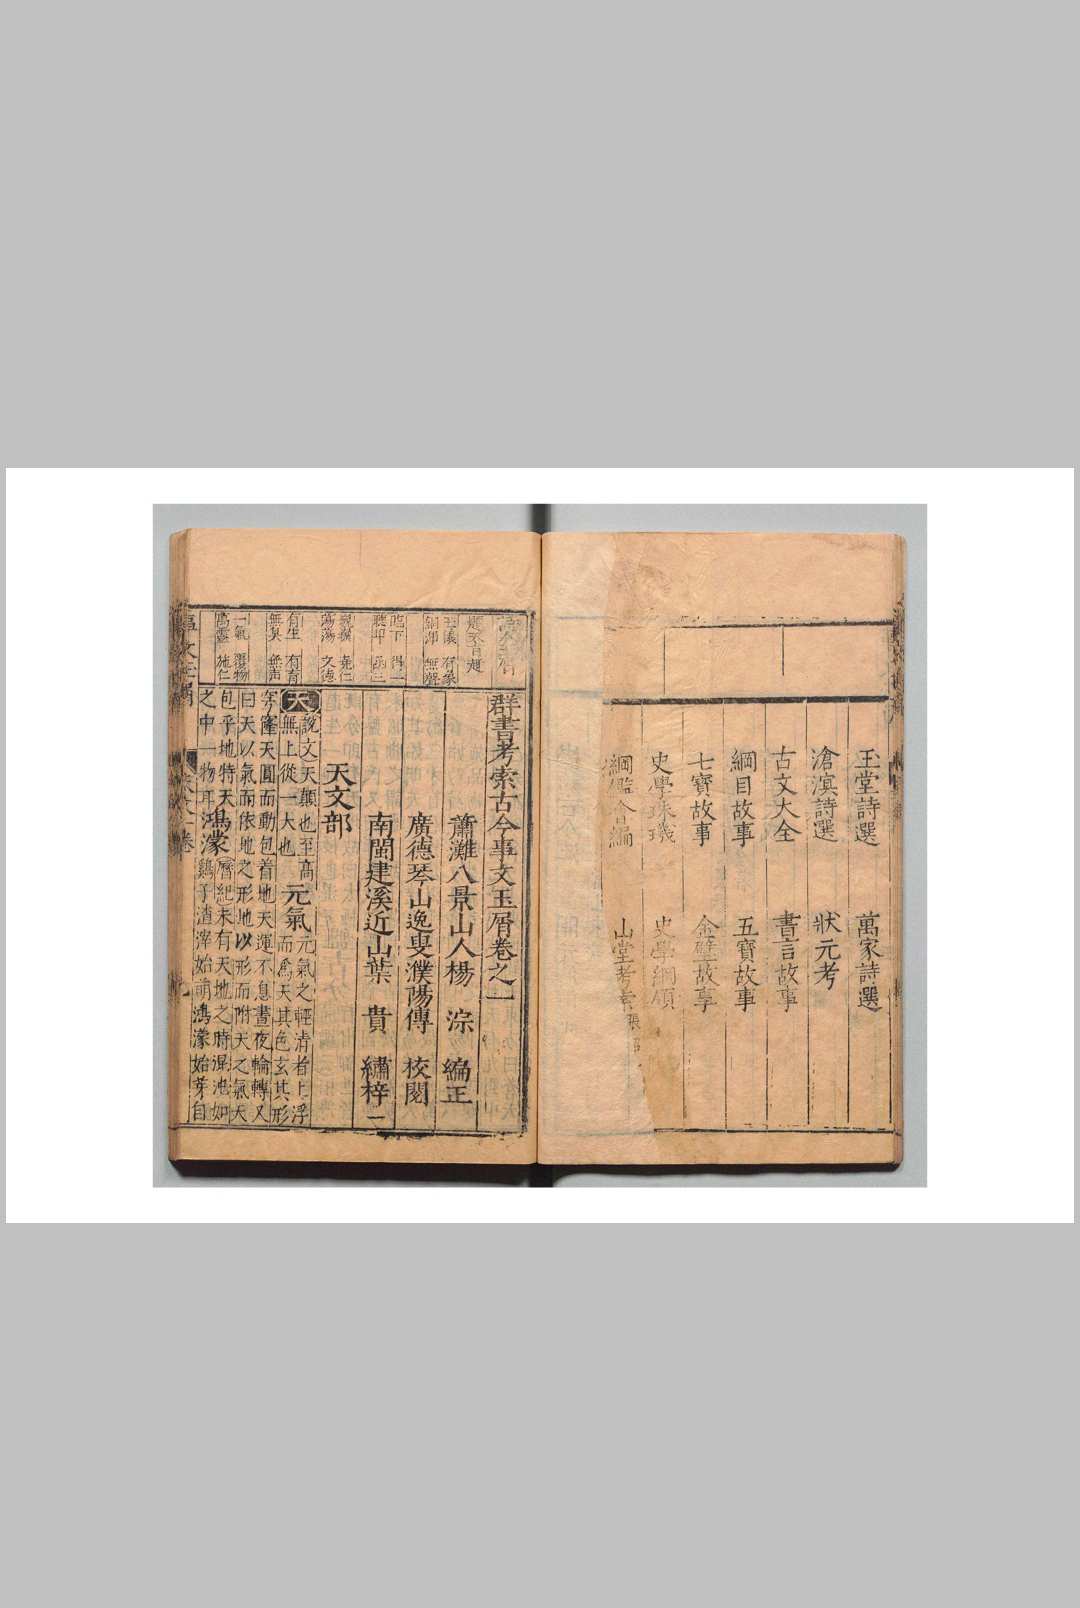 玉堂詩選 萬家詩選
滄溟詩選 狀元考
古文大全 書言故事
綱目故事 五寶故事
七寶故事 金璧故事
史學珠璣 史學綱領
綱鑑會編 山堂考索
群書考索古今事文玉屑卷之一
蕭灘八景山人楊 淙 編正
廣德琴山逸叟濮陽傳 校閱
南閩建溪近山葉 貴 繡梓
天文部
天 說文天顛也至高
無上從一大也 元氣 元氣之輕清者上浮
而為天其色玄其形
穹窿天圓而動包着地天運不息晝夜輪轉又
曰天以氣而依地之形地以形而附天之氣天
包乎地特天
之中一物耳 鴻濛 曆紀未有天地之時混沌如
鷄子渣滓始萌鴻濛始芽自
臨下 得一
聽卑 函三
巍巍 堯仁
蕩蕩 文德
有生 有育
無臭 無声
一氣 覆物